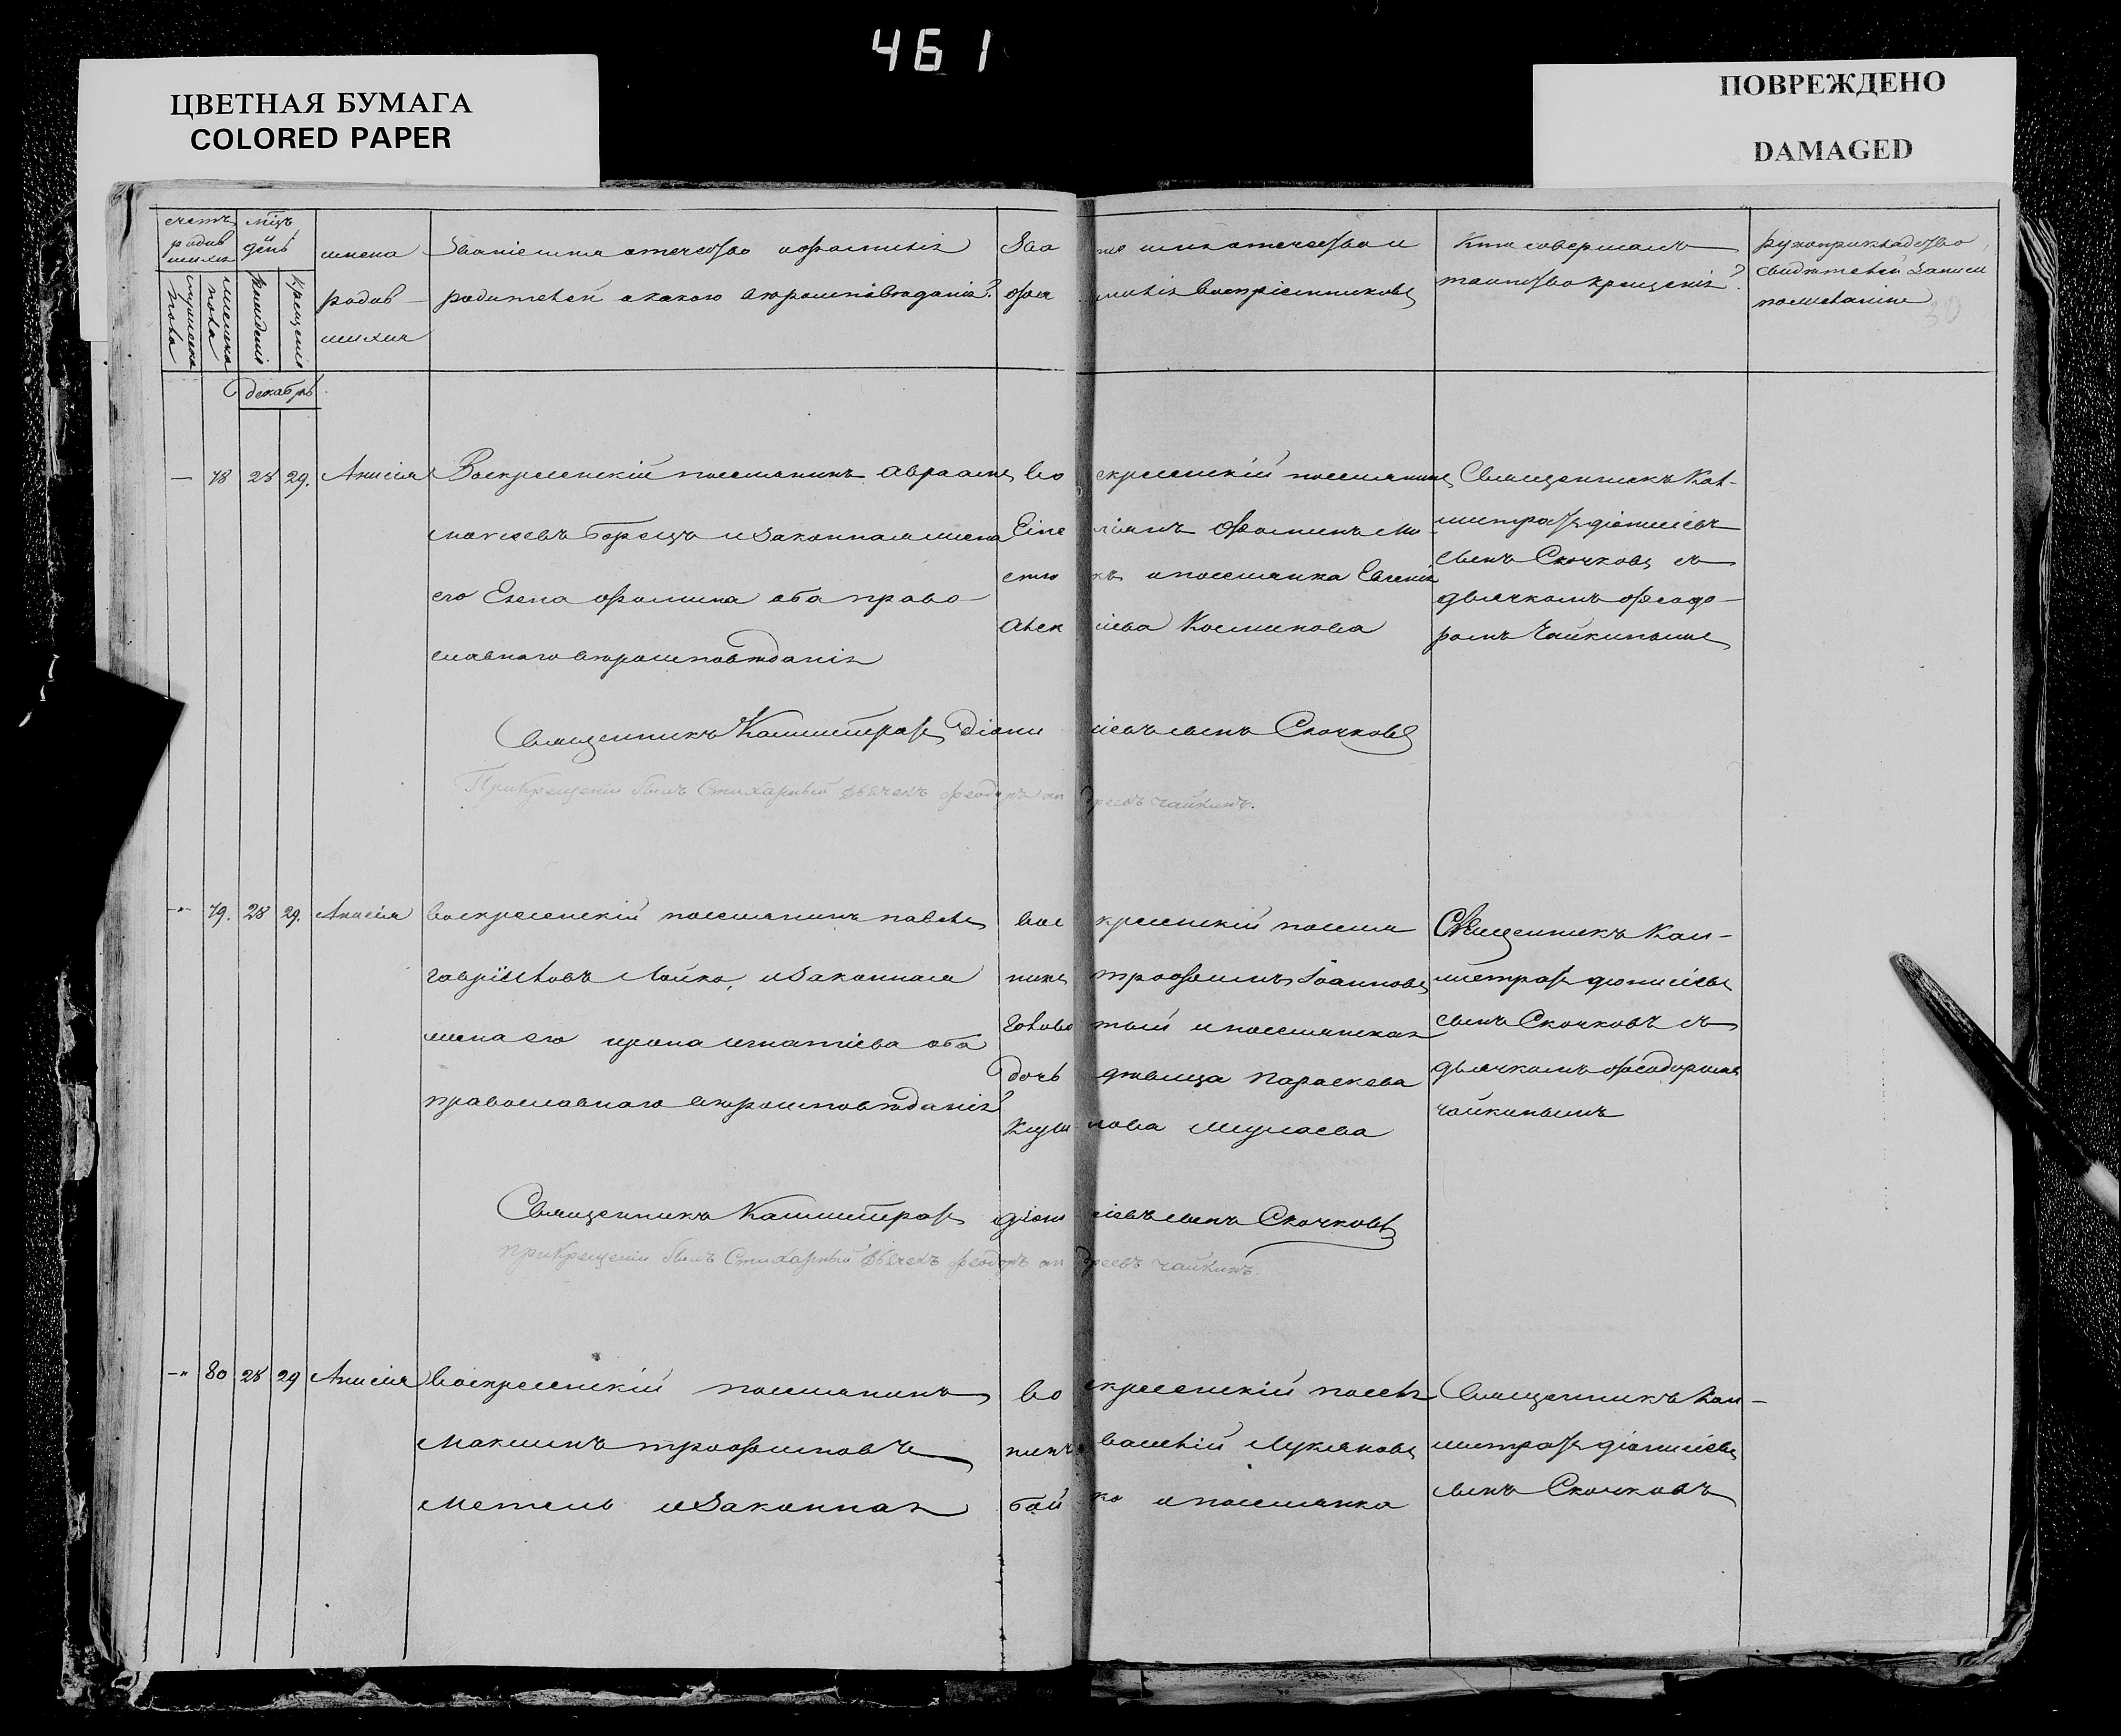 461
ЦВЕТНАЯ БУМАГА
COLORED PAPER
ПОВРЕЖДЕНО
DAMAGED
счетъ родив шихся
мѣцъ и день
мужеска пола
женска пола
рожденія
крещенія
имена
родив-
шихся
Званіе имя отечество и фамилія
родителей и какого вѣроисповѣданія?
Зва ніе имя отечество и
фам милія воспріемниковъ
Кто совершалъ
таинство крещенія?
рукоприкладство
свидѣтелей записи
по желанію
30
декабрь
— 78 28 29. Анисія
Воскресенскій поселянинъ Авраамъ
моисеевъ Борецъ и законная жена
его Елена фомина оба право-
славнаго вѣроисповѣданія
во скресенскій поселянинъ
и поселянка Евгенія
Алек сіева
Священникъ Кал-
листратъ діонисіевъ
сынъ Скочковъ съ
дьячкомъ феодо-
ромъ Чайкинымъ
Священникъ Каллистратъ Діони сіевъ сынъ Скочковъ
При крещеніи былъ Стихарный дьячекъ феодоръ ан дреевъ чайкинъ.
-"- 79. 28 29. Анисія
воскресенскій поселянинъ павелъ
гавріиловъ Лойко, и законная
жена его ирина игнатіева оба
православнаго вѣроисповѣданія
вос кресенскій поселя
нинъ трофимъ Іоанновъ
голово тый и поселянская
дочь дѣвица параскева
Священникъ Кал-
листратъ діонисіевъ
сынъ Скочковъ съ
дьячкомъ феодоромъ
чайкинымъ
Священникъ Каллистратъ діони сіевъ сынъ Скочковъ
при крещеніи былъ Стихарный дьячекъ феодоръ ан дреевъ чайкинъ.
-" 80 28 29 Анисія
воскресенскій поселянинъ
Максимъ трофимовъ
Метель и законная
во скресенскій поселя
нинъ василій Лукяновъ
бой ко и поселянка
Священникъ Кал-
листратъ діонисіевъ
сынъ Скочковъ